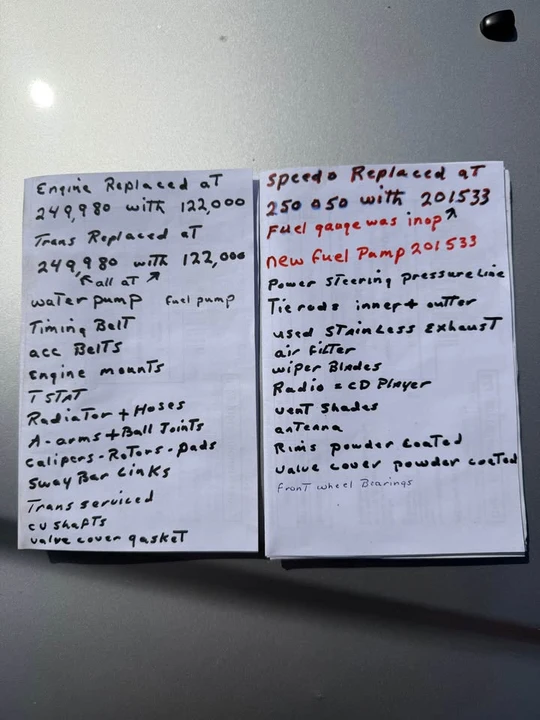 Engine Replaced aT
249,980 with 122,000
Trans Replaced aT
249,980 with 122,000
all aT
waterpump fuel pump
Timing BelT
acc BelTs
Engine mounTs
TSTAT
RadiaTor + Hoses
A-arms + Ball JoinTs
Calipers-RoTors-pads
Sway Bar Links
Trans serviced
cv shafTs
valve cover gaskeT
Speedo Replaced aT
250 050 with 201533
Fuel gauge was inop
new Fuel Pump 201533
Power STeering pressure Line
Tie rods inner + ouTTer
used STainLess ExhausT
air FilTer
wiper Blades
Radio = CD Player
venT shades
anTenna
Rims powder coaTed
valve cover powder coaTed
FronT wheel Bearings